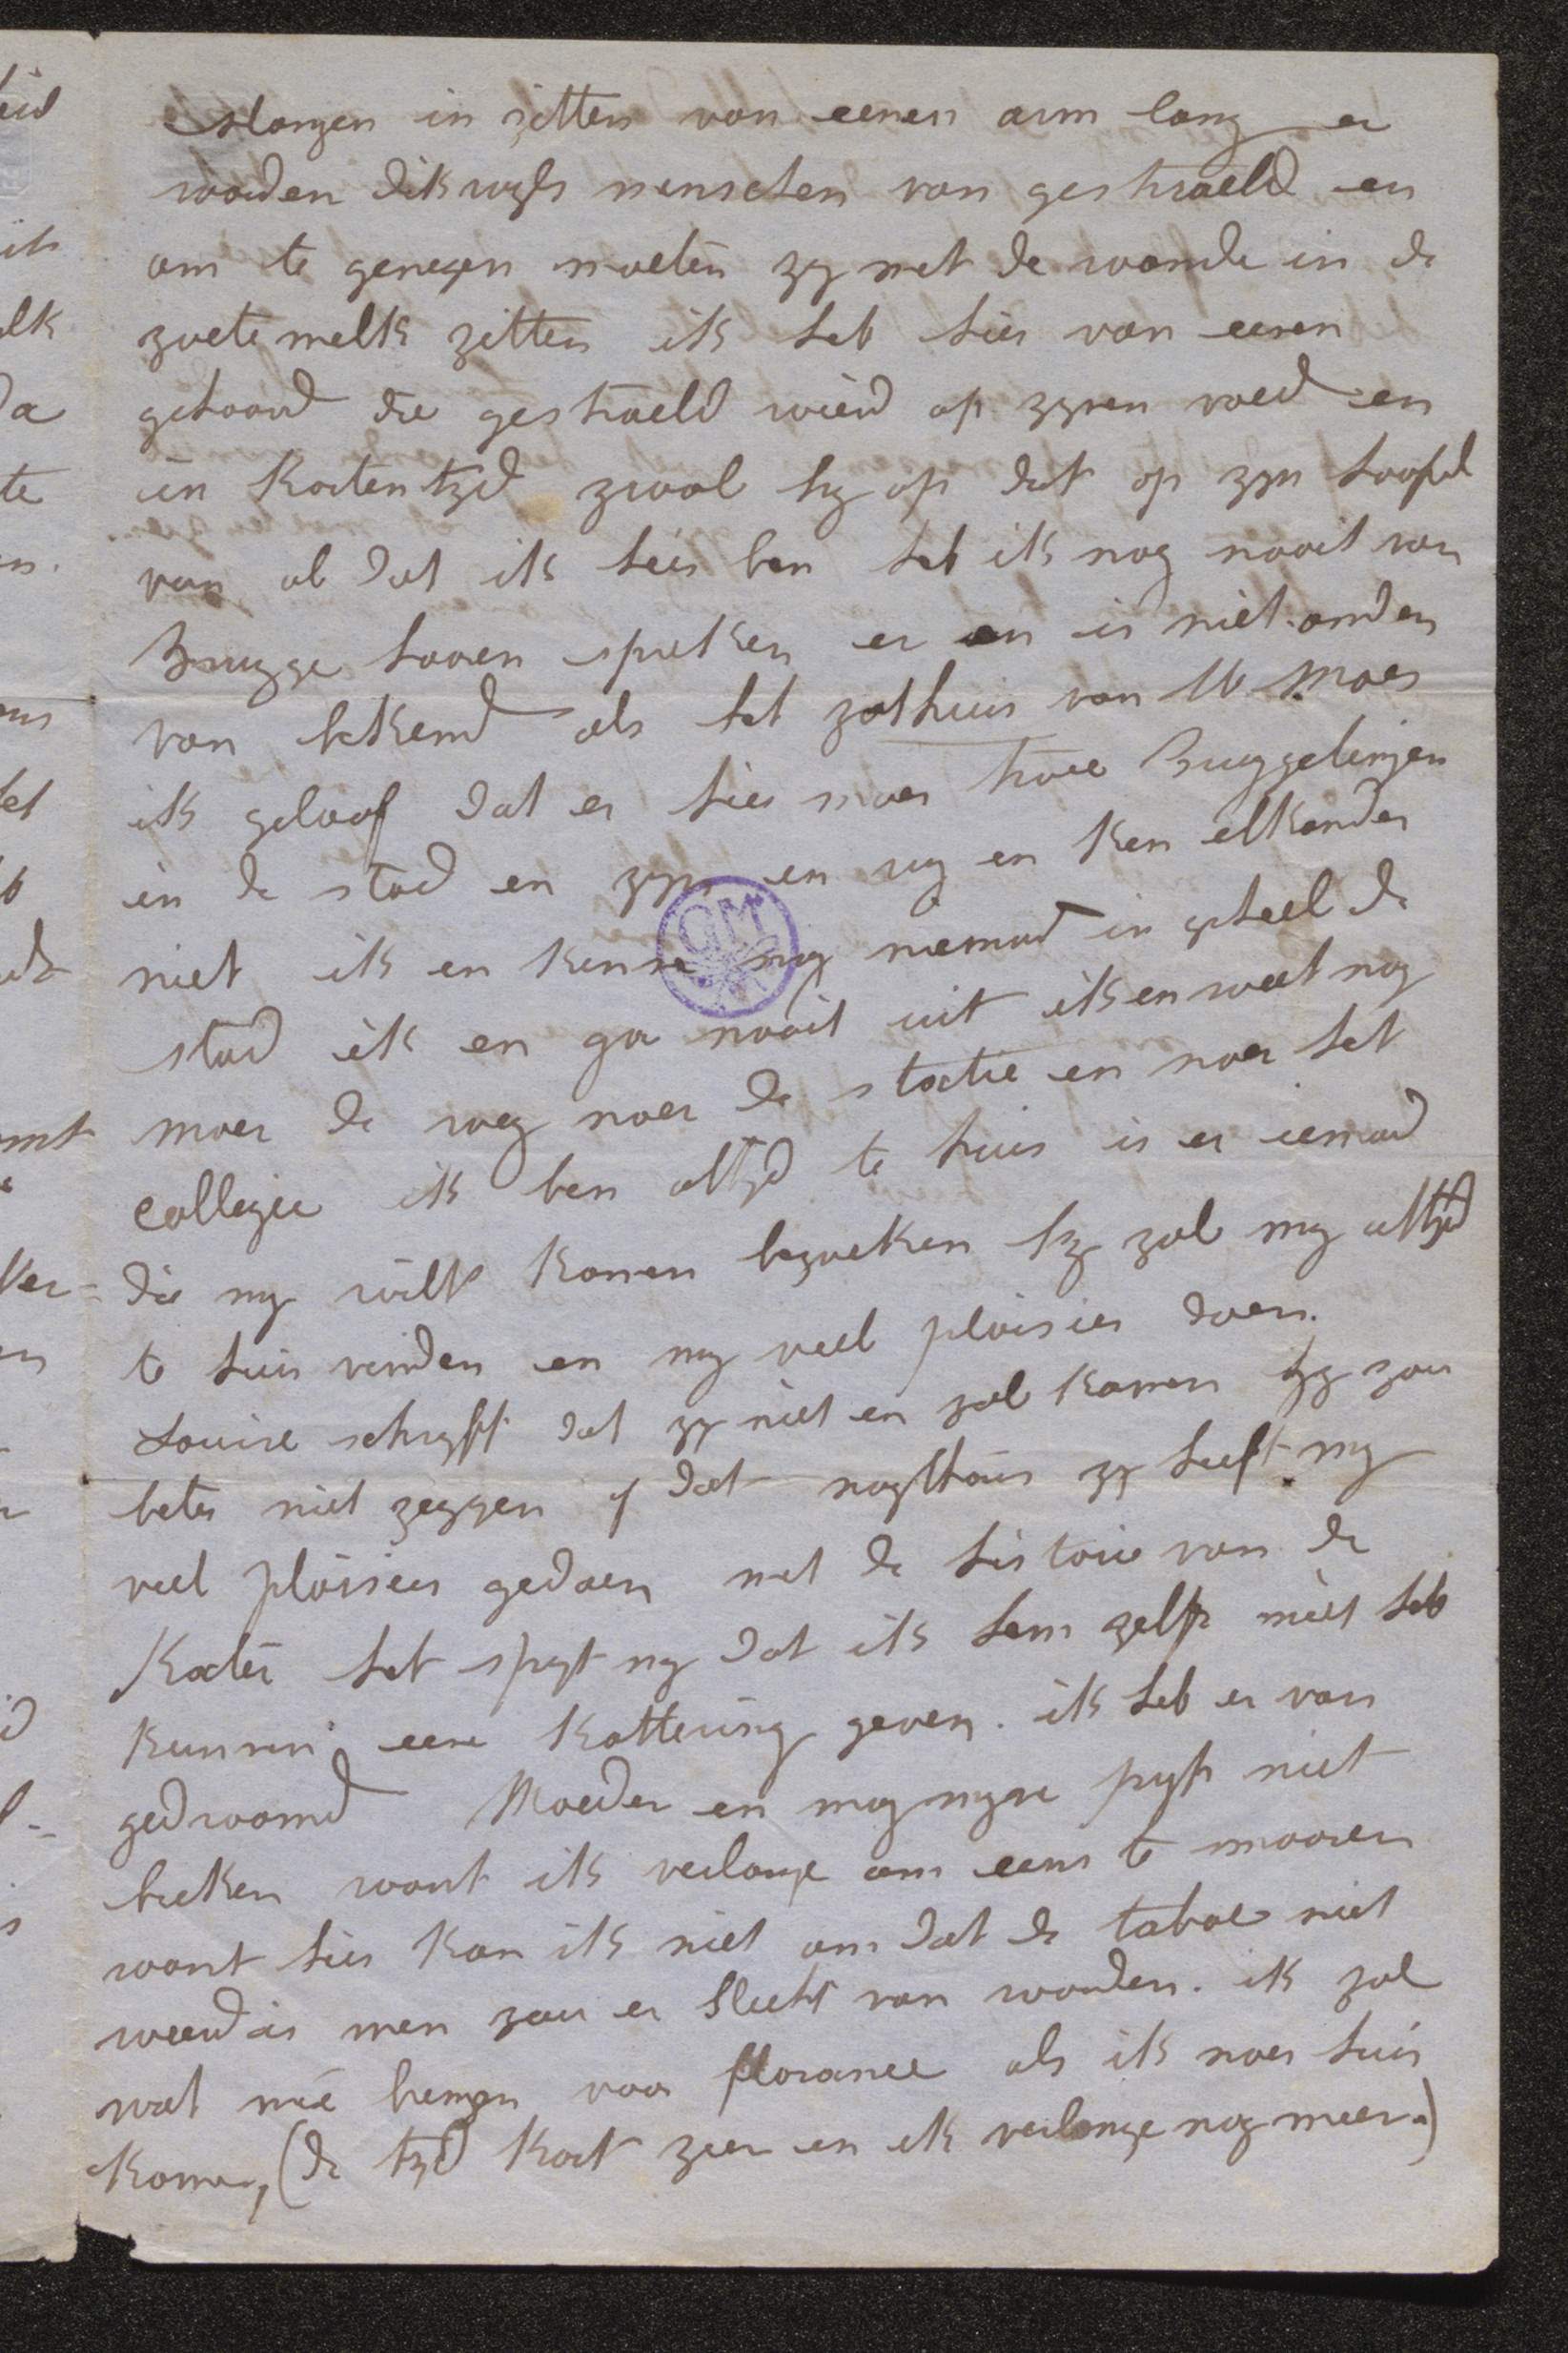 slangen in zitten van eenen arm lang er
worden dikwyls menschen van gestraeld en
om te genezen moeten zy met de wonde in de
zoete melk zitten ik heb hier van eenen
gehoord die gestraeld wierd op zynen voed en
in korten tyd zwol hy op dat op zyn hoofd
van al dat ik hier ben heb ik nog nooit van
Brugge hooren spreken er en is niet anders
van bekend als het zothuis van M Maes
ik geloof dat er hier maer twee Bruggelingen
in de stad en zyn en wy en ken elkander
niet ik en kenne nog niemand in geheel de
stad ik en ga nooit uit ik en weet nog
maer de weg naer de statie en naer het
collegie ik ben altyd te huis is er iemand
die my wilt komen bezoeken hy zal my altyd
te huis vinden en my veel plaisier doen.
Louise schryft dat zy niet en zal komen zy zou
beter niet zeggen of dat nogthans zy heeft my
veel plaisier gedaen met de historie van de
Kater het spyt my dat ik hem zelfs niet heb
kunnen eene kattering geven. ik heb er van
gedroomd Moeder en mag myne pyp niet
breken want ik verlange om eens te smooren
want hier kan ik niet om dat de tabac niet
weerd is men zou er slecht van worden. ik zal
wat mée brengen voor florance als ik naer huis
kome, (de tyd kort zeer en ik verlange nog meer.)
GM